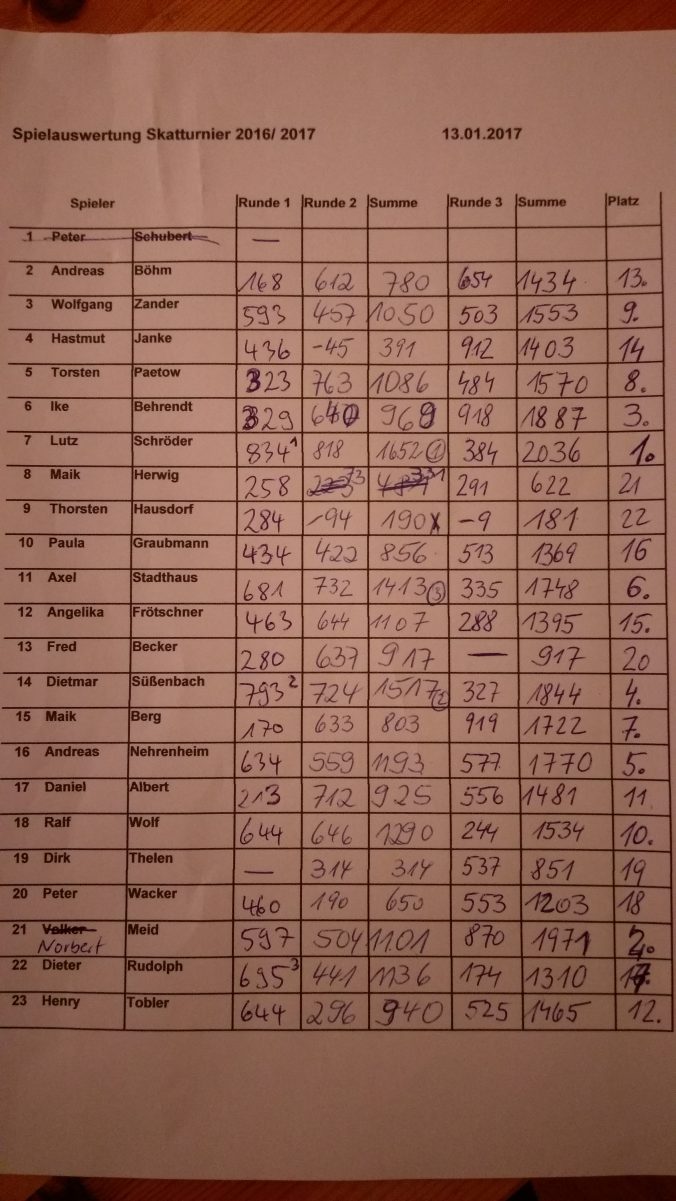 Spielauswertung Skatturnier 2016/ 2017 13.01.2017
Spieler Runde 1 Runde 2 Summe Runde 3 Summe Platz
1 Peter Schubert —
2 Andreas Böhm 168 612 780 654 1434 13.
3 Wolfgang Zander 593 457 1050 503 1553 9.
4 Hastmut Janke 436 -45 391 912 1403 14
5 Torsten Paetow 323 763 1086 484 1570 8.
6 Ike Behrendt 329 640 969 918 1887 3.
7 Lutz Schröder 834 1 818 1652 ① 384 2036 1.
8 Maik Herwig 258 73 331 291 622 21
9 Thorsten Hausdorf 284 -94 190 -9 181 22
10 Paula Graubmann 434 422 856 513 1369 16
11 Axel Stadthaus 681 732 1413 ③ 335 1748 6.
12 Angelika Frötschner 463 644 1107 288 1395 15.
13 Fred Becker 280 637 917 — 917 20
14 Dietmar Süßenbach 793 2 724 1517 ② 327 1844 4.
15 Maik Berg 170 633 803 919 1722 7.
16 Andreas Nehrenheim 634 559 1193 577 1770 5.
17 Daniel Albert 213 712 925 556 1481 11
18 Ralf Wolf 644 646 1290 244 1534 10.
19 Dirk Thelen — 314 314 537 851 19
20 Peter Wacker 460 190 650 553 1203 18
21 Volker Meid 597 504 1101 870 1971 2.
Norbert
22 Dieter Rudolph 695 3 441 1136 174 1310 17.
23 Henry Tobler 644 296 940 525 1465 12.